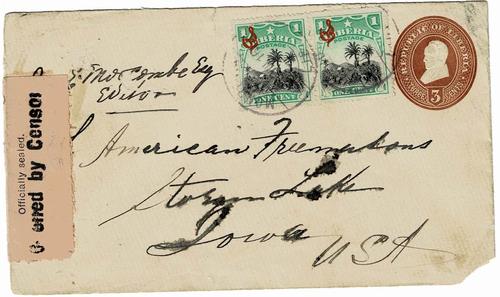 1 LIBERIA 1
POSTAGE
ONE CENT
LIBERIA 1
POSTAGE
ONE CENT
REPUBLIC OF LIBERIA
3
Officially sealed.
ened by Censor
Esq
Editor
American Freemasons
Storm Lake
Iowa
USA